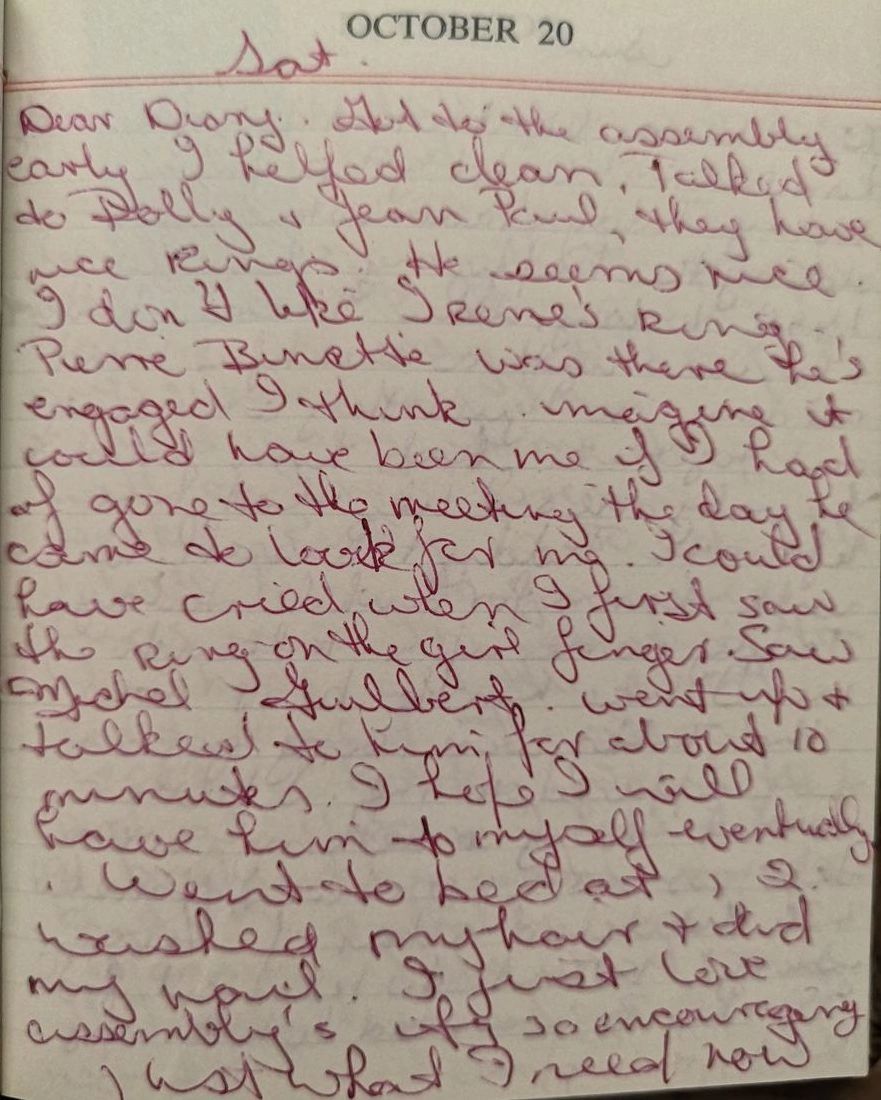 OCTOBER 20
Sat.
Dear Diary. Got to the assembly
early I helped clean. Talked
to Dolly + Jean Paul, they have
nice rings. He seems nice.
I don't like Irene's ring.
Pierre Binette was there he's
engaged I think. imagine it
could have been me if I had
of gone to the meeting the day he
came to look for me. I could
have cried when I first saw
the ring on the girl finger. Saw
Michel Guilbert. went up +
talked to him for about 10
minutes. I hope I will
have him to myself eventually
. Went to bed at 12.
washed my hair + did
my nail. I just love
assembly's it's so encouraging
just what I need now